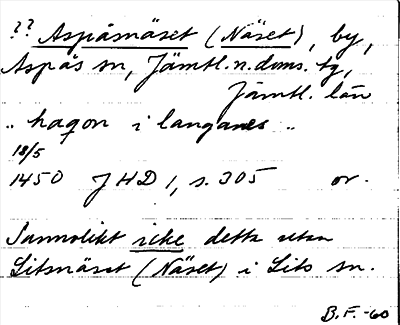 ?? Aspåsnäset (Näset), by,
Aspås sn, Jämtl. n. doms. tg,
Jämtl. län
" haqon i langanes "
18/5
1450 JHD 1, s. 305 or.
Sannolikt icke detta utan
Litsnäset (Näset) i Lits sn.
B.F. -60